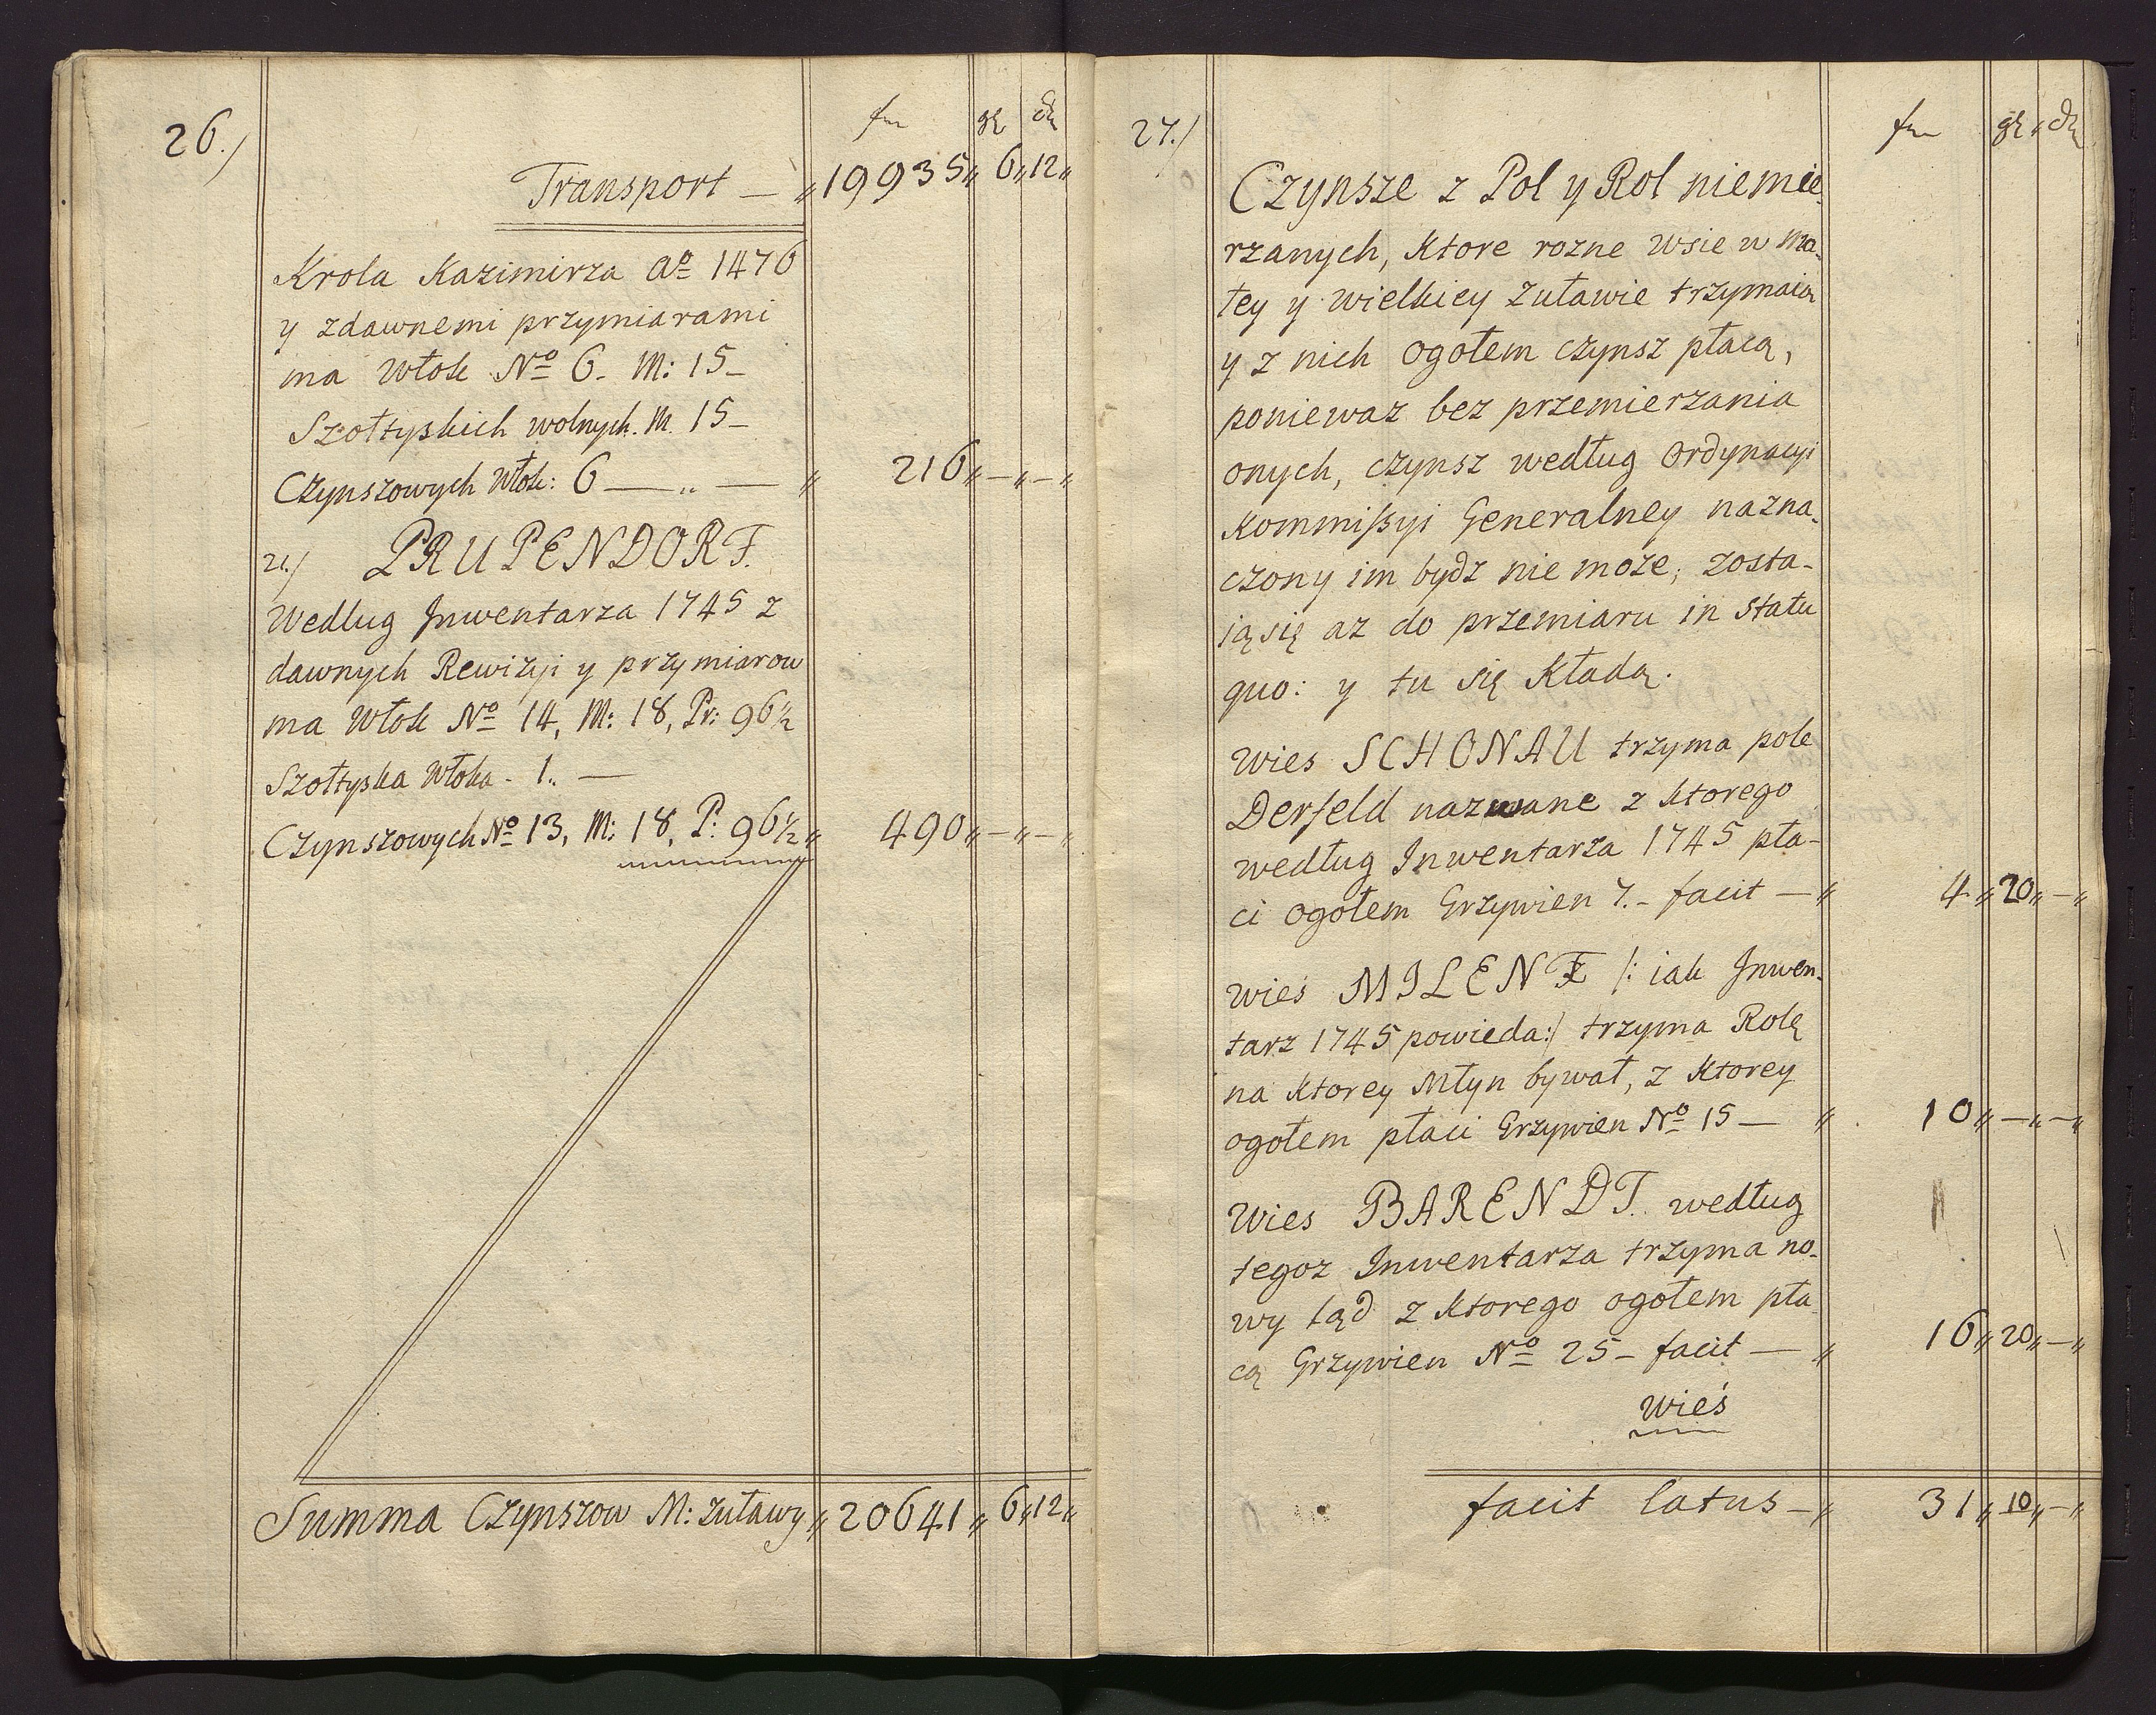 26.)
fn gr dn
Transport — „ 19935 „ 6 „ 12 „
Krola Kazimirza Aº 1476
y zdawnemi przymiarami
ma Włok Nº 6. M: 15 –
Szołtyskich wolnych. M. 15 –
Czynszowych Włok: 6 — „ — „ 216 „ – „ – „
21.) PRUPENDORF.
Wedlug Inwentarza 1745 z
dawnych Rewizyi y przymiarow
ma Włok Nº 14, M: 18, Pr: 96½
Szołtyska Włoka - 1 „ —
Czynszowych Nº 13, M: 18, P: 96½ „ 490 „ – „ – „
Summa Czynszow M: Zuławy „ 20641 „ 6 „ 12 „
27.)
fn gr „ dn
Czynsze z Pol y Rol niemie-
rzanych, Ktore rozne wsie w Ma-
łey y wielkiey Zuławie trzymaią
y z nich ogołem czynsz płacą,
poniewaz bez przemierzania
onych, czynsz według Ordynacyi
Kommißyi Generalney nazna-
czony im bydz nie moze, zosta-
ią się az do przemiaru in statu
quo: y tu się Kładą.
Wies SCHONAU trzyma pole
Derfeld nazwane z Ktorego
według Inwentarza 1745 pła-
ci ogołem Grzywien 7. – facit — „ 4 „ 20 „ – „
Wieś MILENZ /: iak Inwen-
tarz 1745 powieda :/ trzyma Rolę
na Ktorey Młyn bywał, z Ktorey
ogołem płaci Grzywien Nº 15 — „ 10 „ – „ – „
Wies BARENDT. według
tegoz Inwentarza trzyma no-
wy ląd z Ktorego ogołem pła-
cą Grzywien Nº 25 – facit — „ 16 „ 20 „ – „
Wieś
facit latus – „ 31 „ 10 „ – „